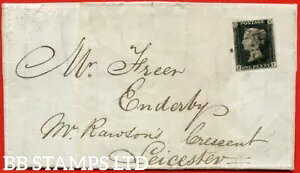 POSTAGE
ONE PENNY
Mr. Freer
Enderby
Mr Rawson's Crescent
Leicester
BB STAMPS LTD